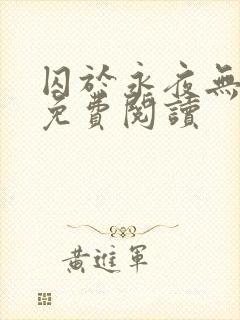 囚於永夜無
免費閱讀
黃進軍